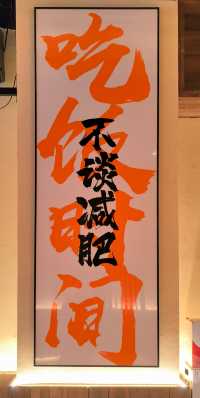 吃饭时间
不谈减肥